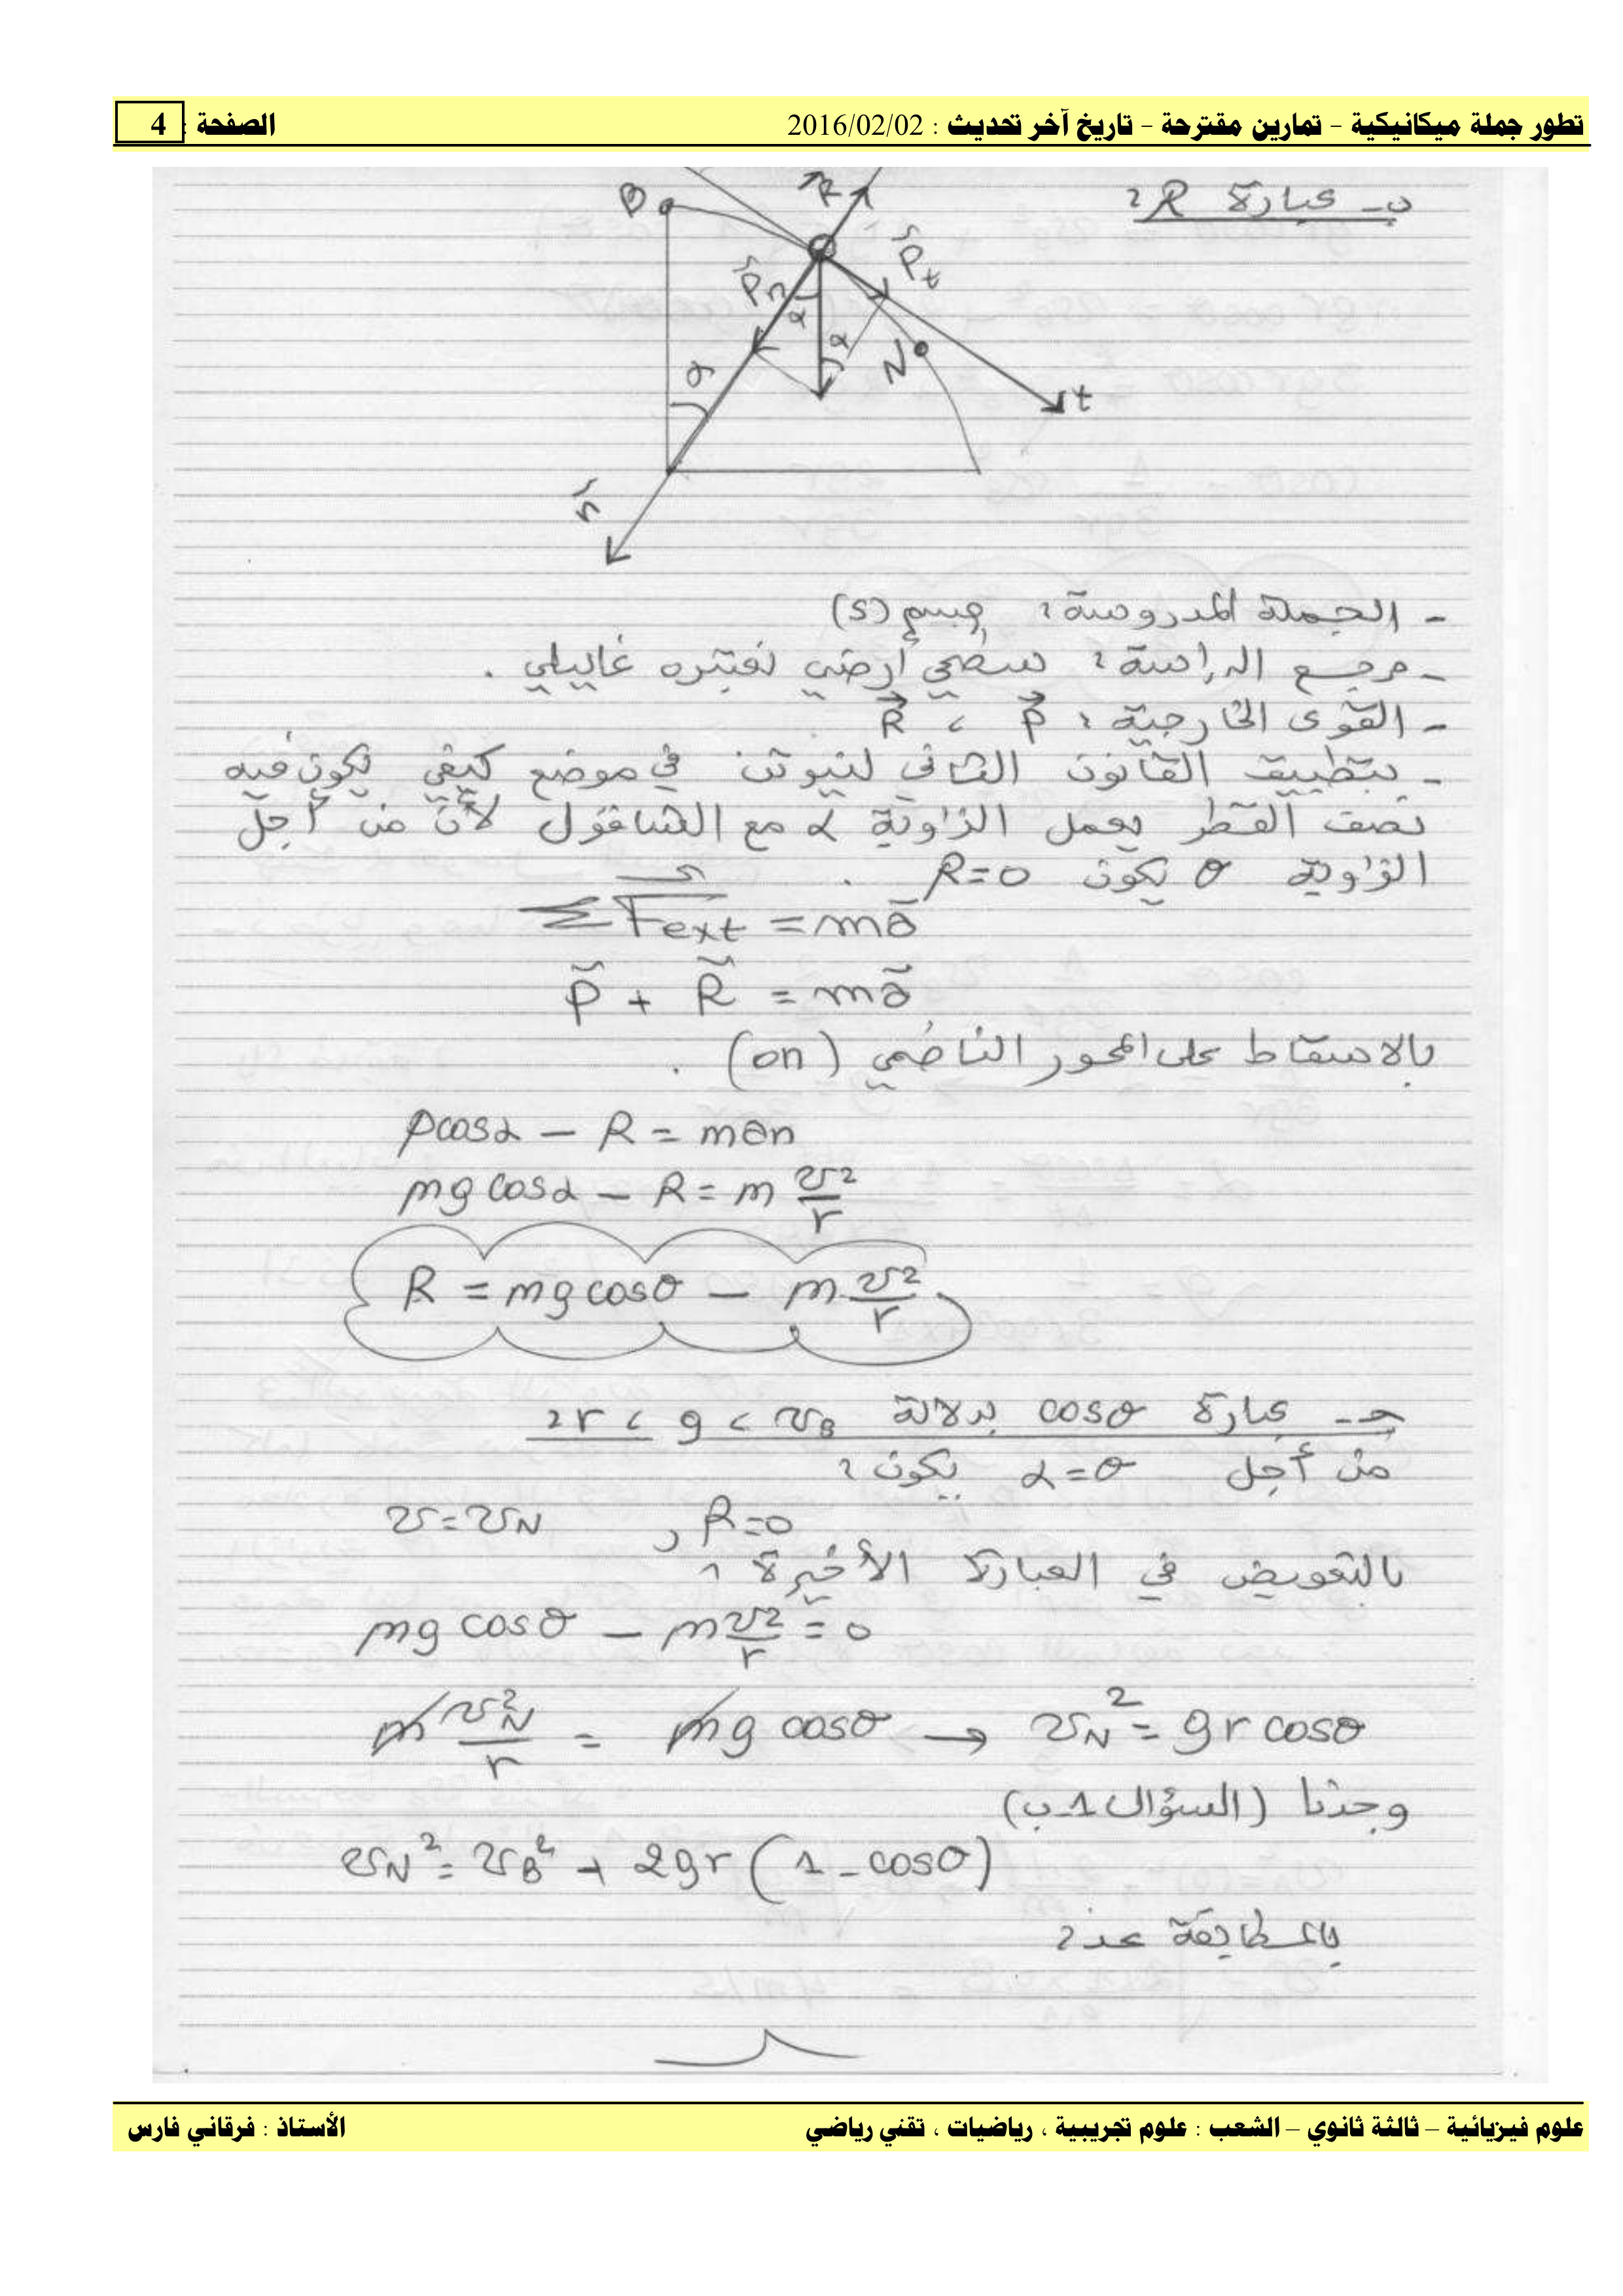 تطور جملة ميكانيكية - تمارين مقترحة - تاريخ آخر تحديث : 2016/02/02
الصفحة : 4
ب- عبارة R :
B
R
Pn
Pt
α
α
α
N
t
n
- الجملة المدروسة : جسم (S)
- مرجع الدراسة : سطحي أرضي نعتبره غاليلي .
- القوى الخارجية : P ، R
- بتطبيق القانون الثاني لنيوتن في موضع كيفي يكون فيه
نصف القطر يعمل الزاوية α مع الشاقول لأن من أجل
الزاوية θ يكون R=0 .
Σ Fext = ma
P + R = ma
بالاسقاط على المحور الناظمي (on) .
Pcosα – R = man
mg cosα – R = m v²/r
R = mg cosθ – m v²/r
جـ- عبارة cosθ بدلالة vB ، g ، r :
من أجل α=θ يكون :
v=vN , R=0
بالتعويض في العبارة الأخيرة :
mg cosθ – m v²/r = 0
m vN²/r = mg cosθ → vN² = gr cosθ
وجدنا (السؤال 1-ب)
vN² = vB² + 2gr (1-cosθ)
بالمطابقة
علوم فيزيائية – ثالثة ثانوي – الشعب : علوم تجريبية ، رياضيات ، تقني رياضي
الأستاذ : فرقاني فارس